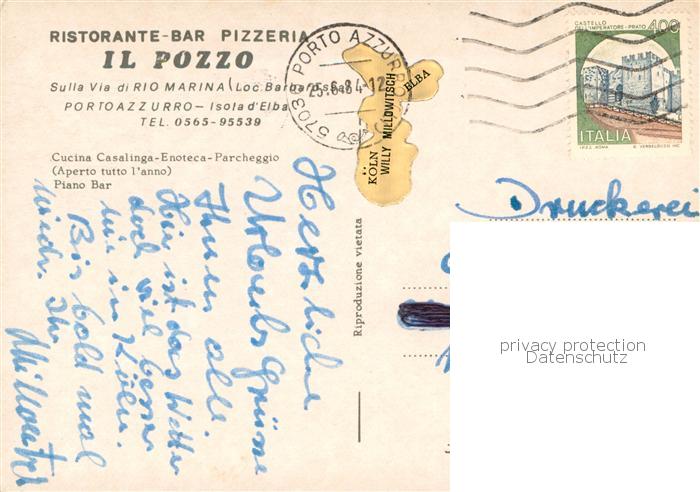 RISTORANTE-BAR PIZZERIA
IL POZZO
Sulla Via di RIO MARINA (Loc. Barbarossa)
PORTOAZZURRO - Isola d'Elba
TEL. 0565-95539
Cucina Casalinga-Enoteca-Parcheggio
(Aperto tutto l'anno)
Piano Bar
PORTO AZZURRO
25.6.84-12
5703
ELBA
WILLY MILLOWITSCH
KÖLN
CASTELLO
DELL'IMPERATORE-PRATO
400
ITALIA
Riproduzione vietata
Herzliche
Urlaubs Grüsse
Ihnen alle
Hier ist das Wetter
doch viel besser
wie in Köln.
Bis bald mal
wieder. Ihr
Millowitsch
Druckerei
privacy protection
Datenschutz